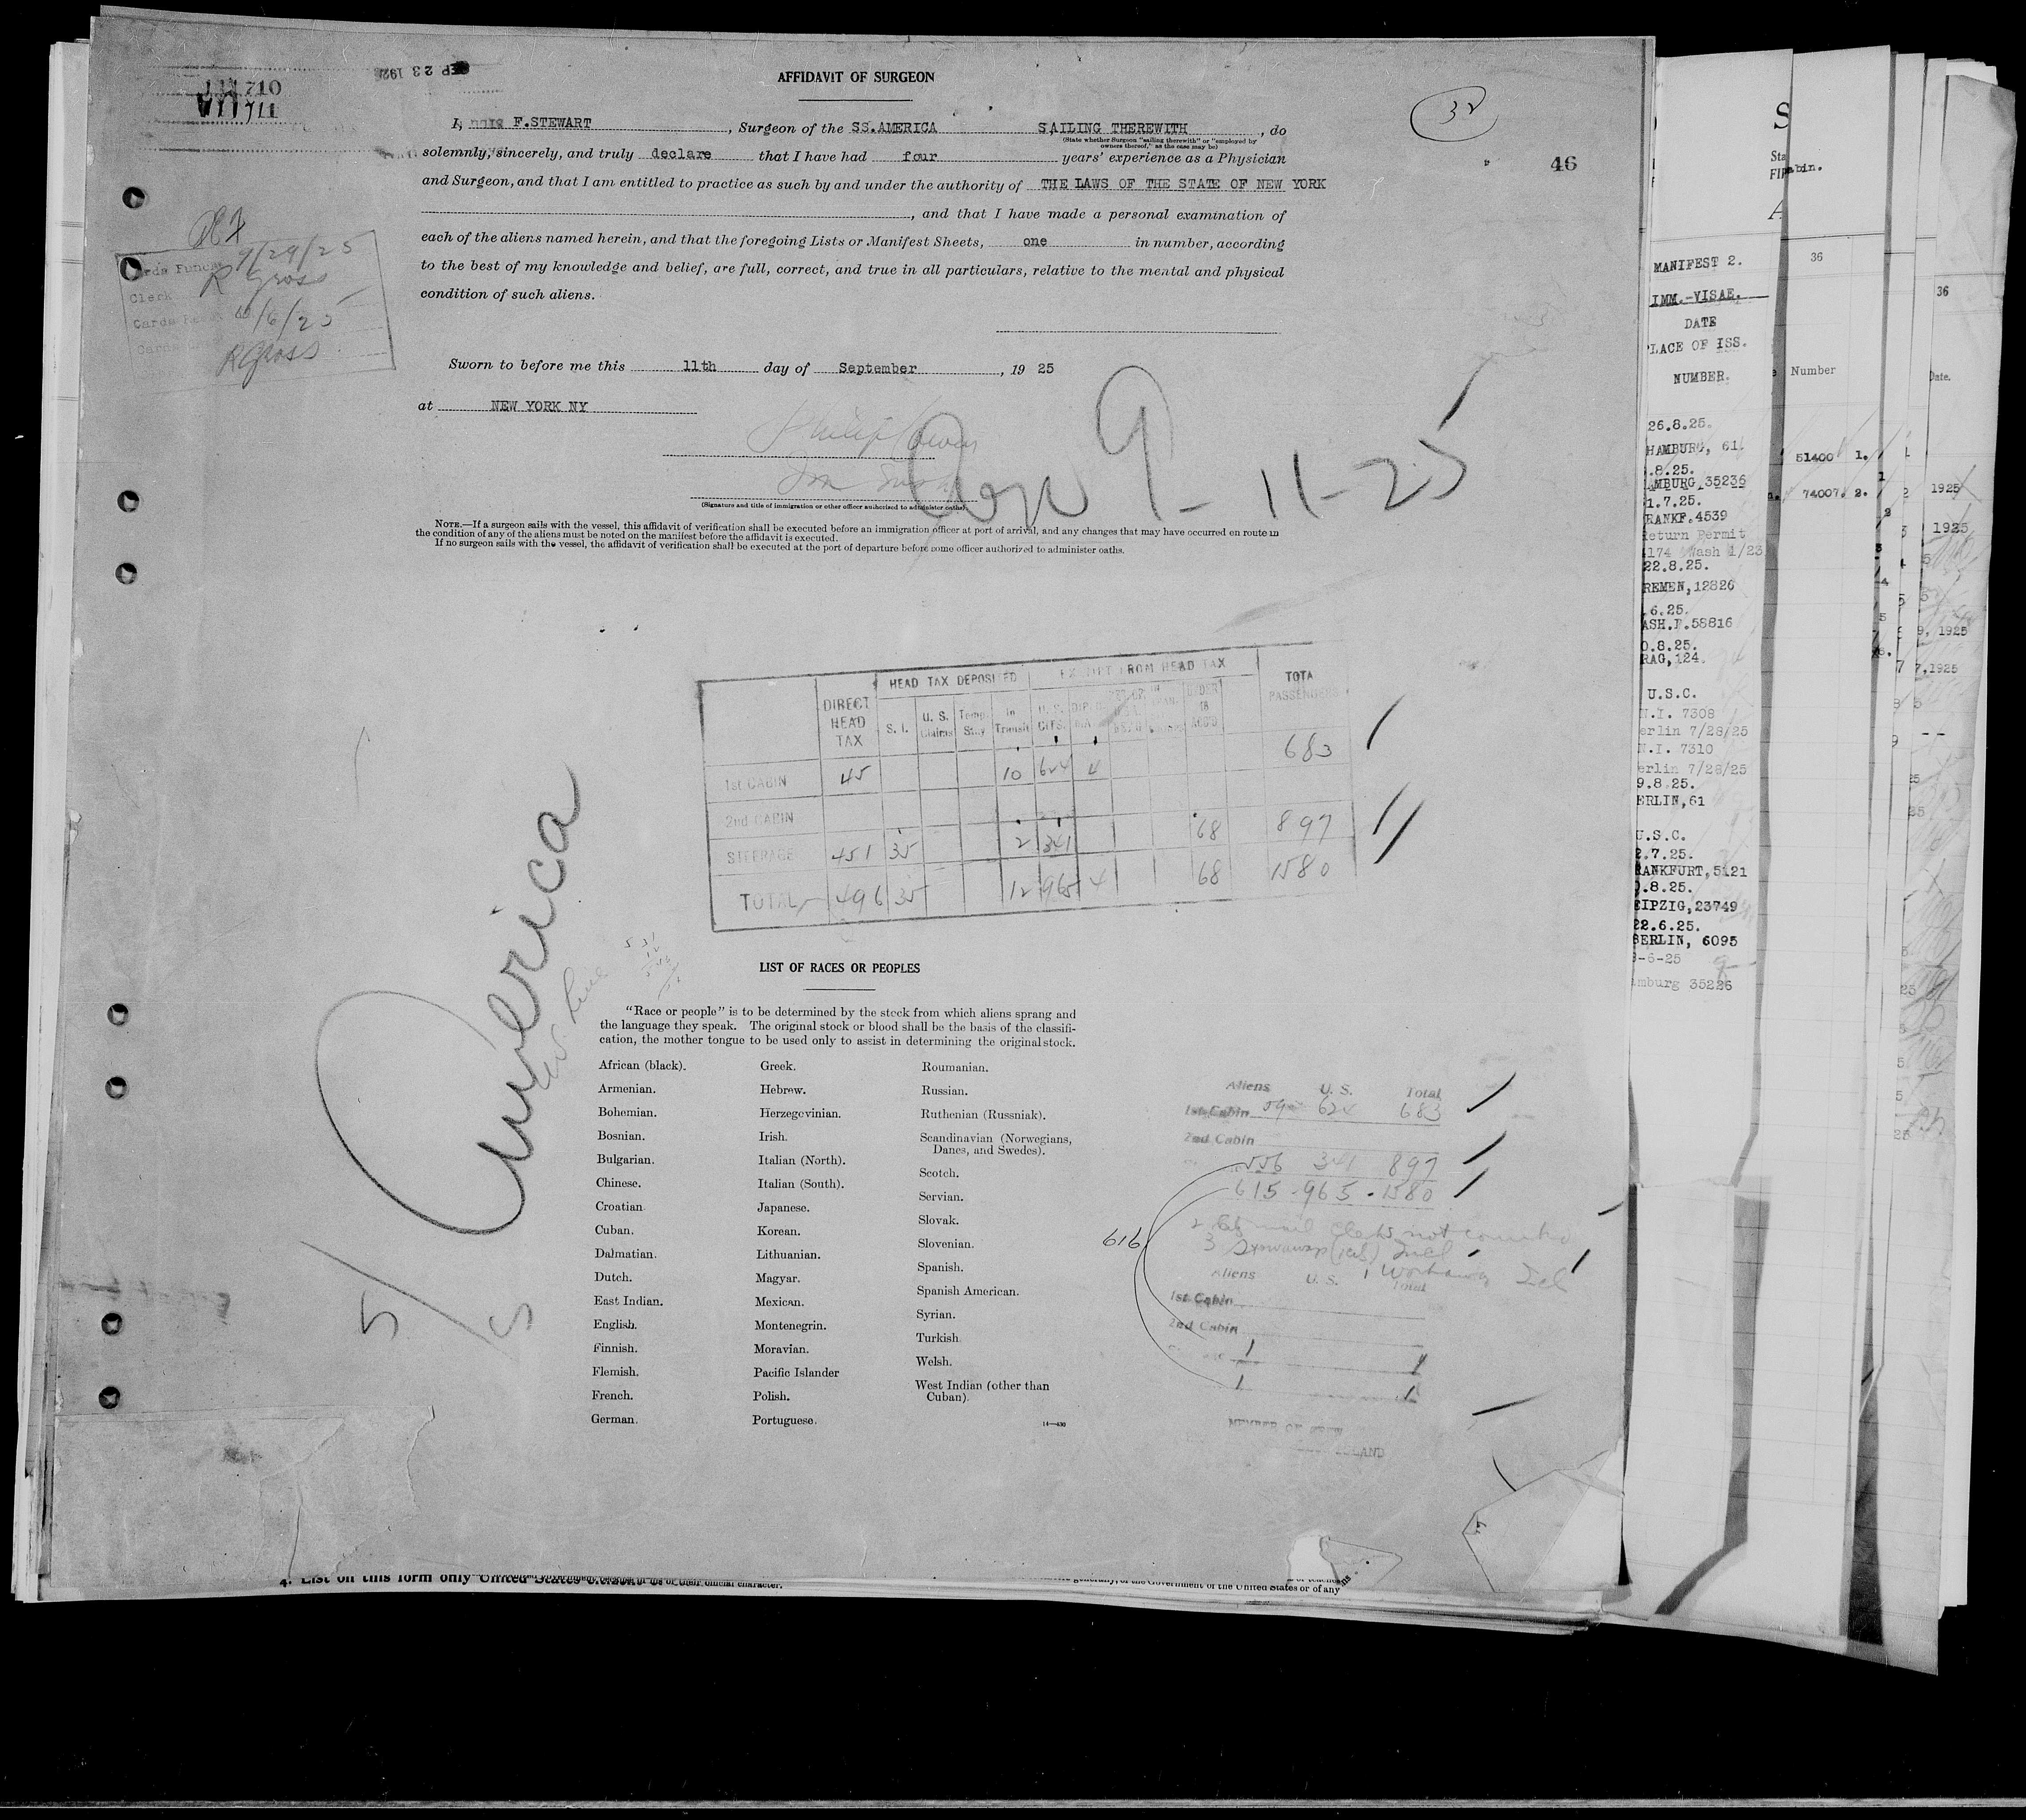 SEP 23 192
710
11711
AFFIDAVIT OF SURGEON
32
46
I, F.STEWART, Surgeon of the SS.AMERICA SAILING THEREWITH, do
(State whether Surgeon "sailing therewith" or "employed by
owners thereof," as the case may be)
solemnly, sincerely, and truly declare that I have had four years' experience as a Physician
and Surgeon, and that I am entitled to practice as such by and under the authority of THE LAWS OF THE STATE OF NEW YORK
, and that I have made a personal examination of
each of the aliens named herein, and that the foregoing Lists or Manifest Sheets, one in number, according
to the best of my knowledge and belief, are full, correct, and true in all particulars, relative to the mental and physical
condition of such aliens.
9/29/25
R Gross
Clerk
/6/25
R Gross
Sworn to before me this 11th day of September, 19 25
at NEW YORK NY
9-11-25
(Signature and title of immigration or other officer authorized to administer oaths)
NOTE.—If a surgeon sails with the vessel, this affidavit of verification shall be executed before an immigration officer at port of arrival, and any changes that may have occurred en route in
the condition of any of the aliens must be noted on the manifest before the affidavit is executed.
If no surgeon sails with the vessel, the affidavit of verification shall be executed at the port of departure before some officer authorized to administer oaths.
HEAD TAX DEPOSITED EXEMPT FROM HEAD TAX
DIRECT HEAD TAX S. I. U. S. Claims Temp. Stay In Transit U. S. CITS. UNDER 16 ACC'D TOTA PASSENGERS
1st CABIN 45 10 624 4 683
2nd CABIN
STEERAGE 451 35 2 341 68 897
TOTAL 496 35 12 965 4 68 1580
S/S America
LIST OF RACES OR PEOPLES
"Race or people" is to be determined by the stock from which aliens sprang and
the language they speak. The original stock or blood shall be the basis of the classifi-
cation, the mother tongue to be used only to assist in determining the original stock.
African (black).
Armenian.
Bohemian.
Bosnian.
Bulgarian.
Chinese.
Croatian.
Cuban.
Dalmatian.
Dutch.
East Indian.
English.
Finnish.
Flemish.
French.
German.
Greek.
Hebrew.
Herzegovinian.
Irish.
Italian (North).
Italian (South).
Japanese.
Korean.
Lithuanian.
Magyar.
Mexican.
Montenegrin.
Moravian.
Pacific Islander
Polish.
Portuguese.
Roumanian.
Russian.
Ruthenian (Russniak).
Scandinavian (Norwegians,
Danes, and Swedes).
Scotch.
Servian.
Slovak.
Slovenian.
Spanish.
Spanish American.
Syrian.
Turkish.
Welsh.
West Indian (other than
Cuban).
14—430
Aliens U. S. Total
1st Cabin 59 624 683
2nd Cabin
556 341 897
615-965-1580
616
mail clerks not counted
3 Stowaways Incl
1 Workaway Incl
Aliens U. S. Total
1st Cabin
2nd Cabin
1 1
1 1
MEMBER OF
4. List on this form only United States
generally, or the Government of the United States or of any
MANIFEST 2.
IMM.-VISAE.
DATE
PLACE OF ISS.
NUMBER.
26.8.25.
HAMBURG, 61
.8.25.
AMBURG 35236
1.7.25.
RANKF.4539
Return Permit
174 Wash 1/23
22.8.25.
REMEN,12826
.6.25.
ASH.D.58816
0.8.25.
RAG,124.
U.S.C.
N.I. 7308
erlin 7/28/25
N.I. 7310
erlin 7/28/25
9.8.25.
ERLIN,61
U.S.C.
2.7.25.
RANKFURT,5121
0.8.25.
EIPZIG,23749
22.6.25.
BERLIN, 6095
-6-25
mburg 35226
36
Number
51400 1.
74007. 2.
36
Date.
1925
1925
9, 1925
7,1925